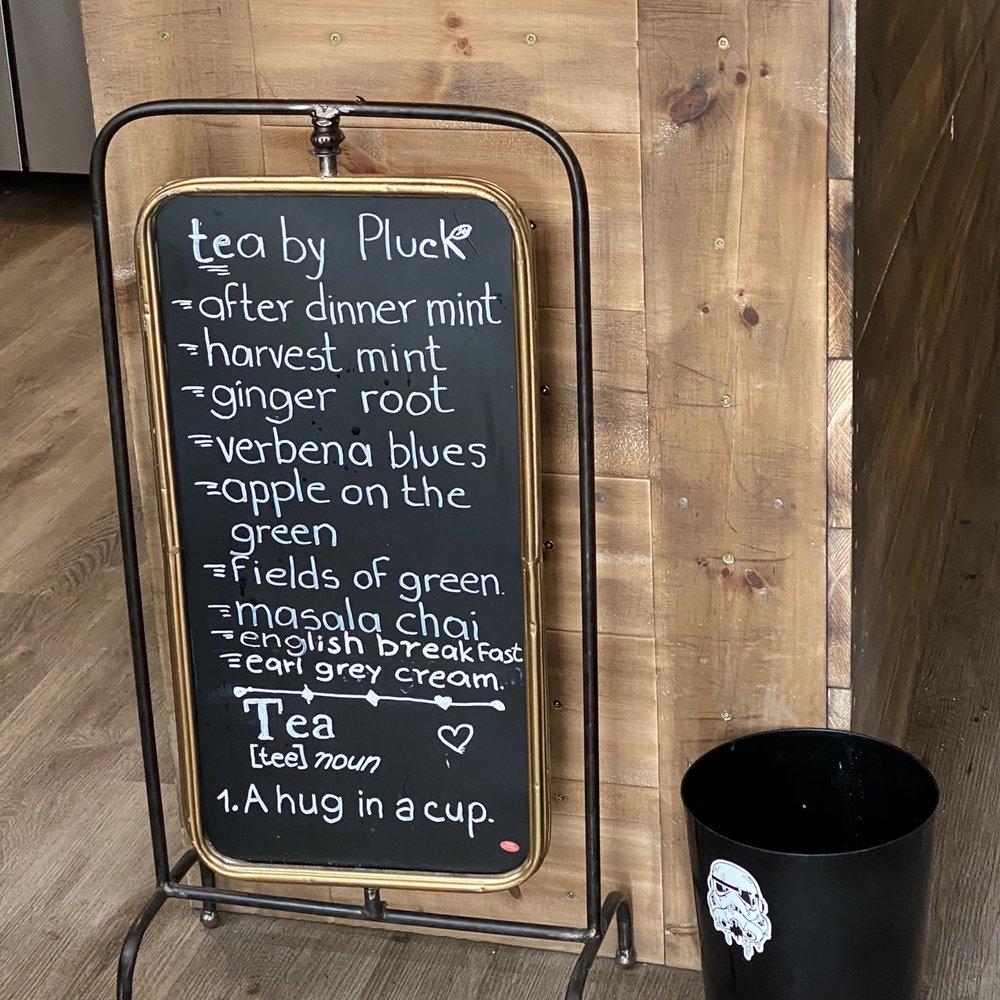 tea by Pluck
=after dinner mint
=harvest mint
=ginger root
=verbena blues
=apple on the
green
=fields of green.
=masala chai
=english breakfast
=earl grey cream.
Tea
[tee] noun
1. A hug in a cup.